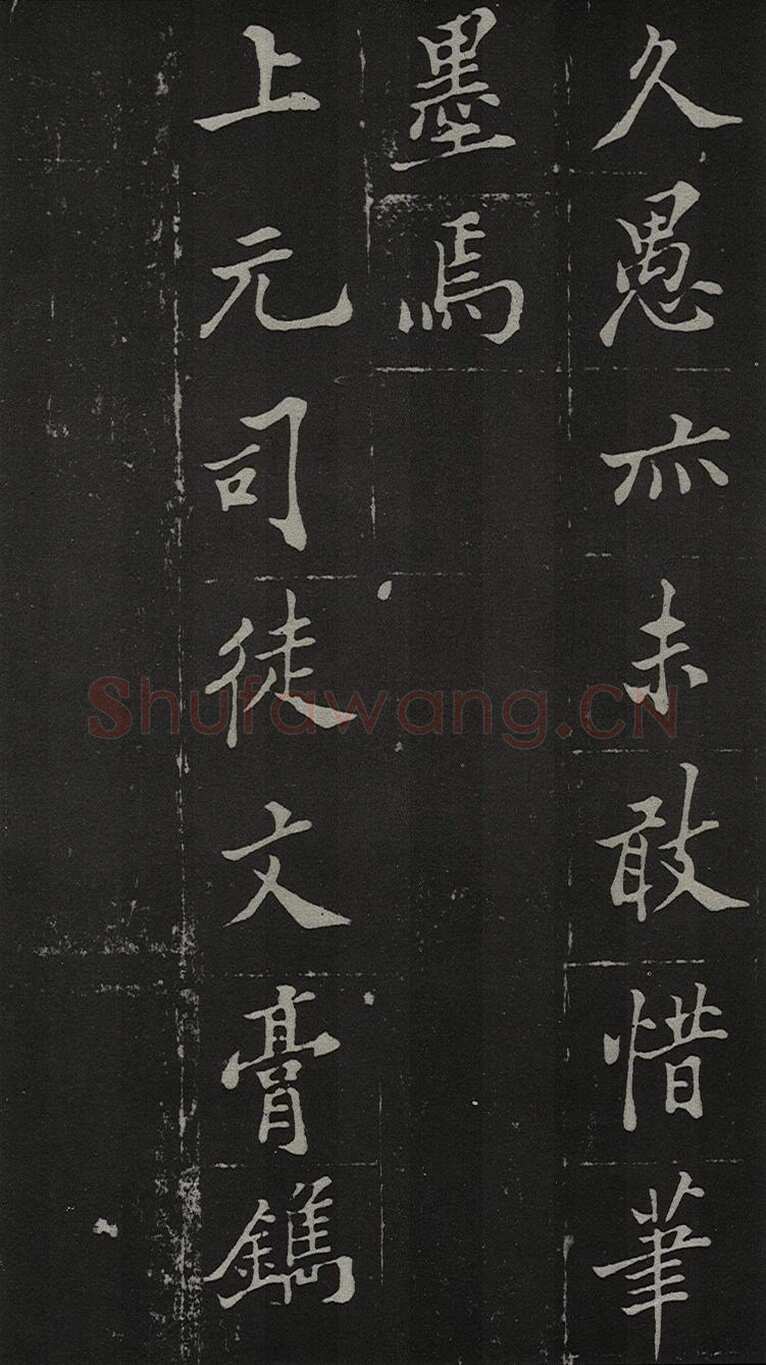 久愚亦未敢惜筆
墨焉
上元司徒文膏鐫
Shufawang.CN